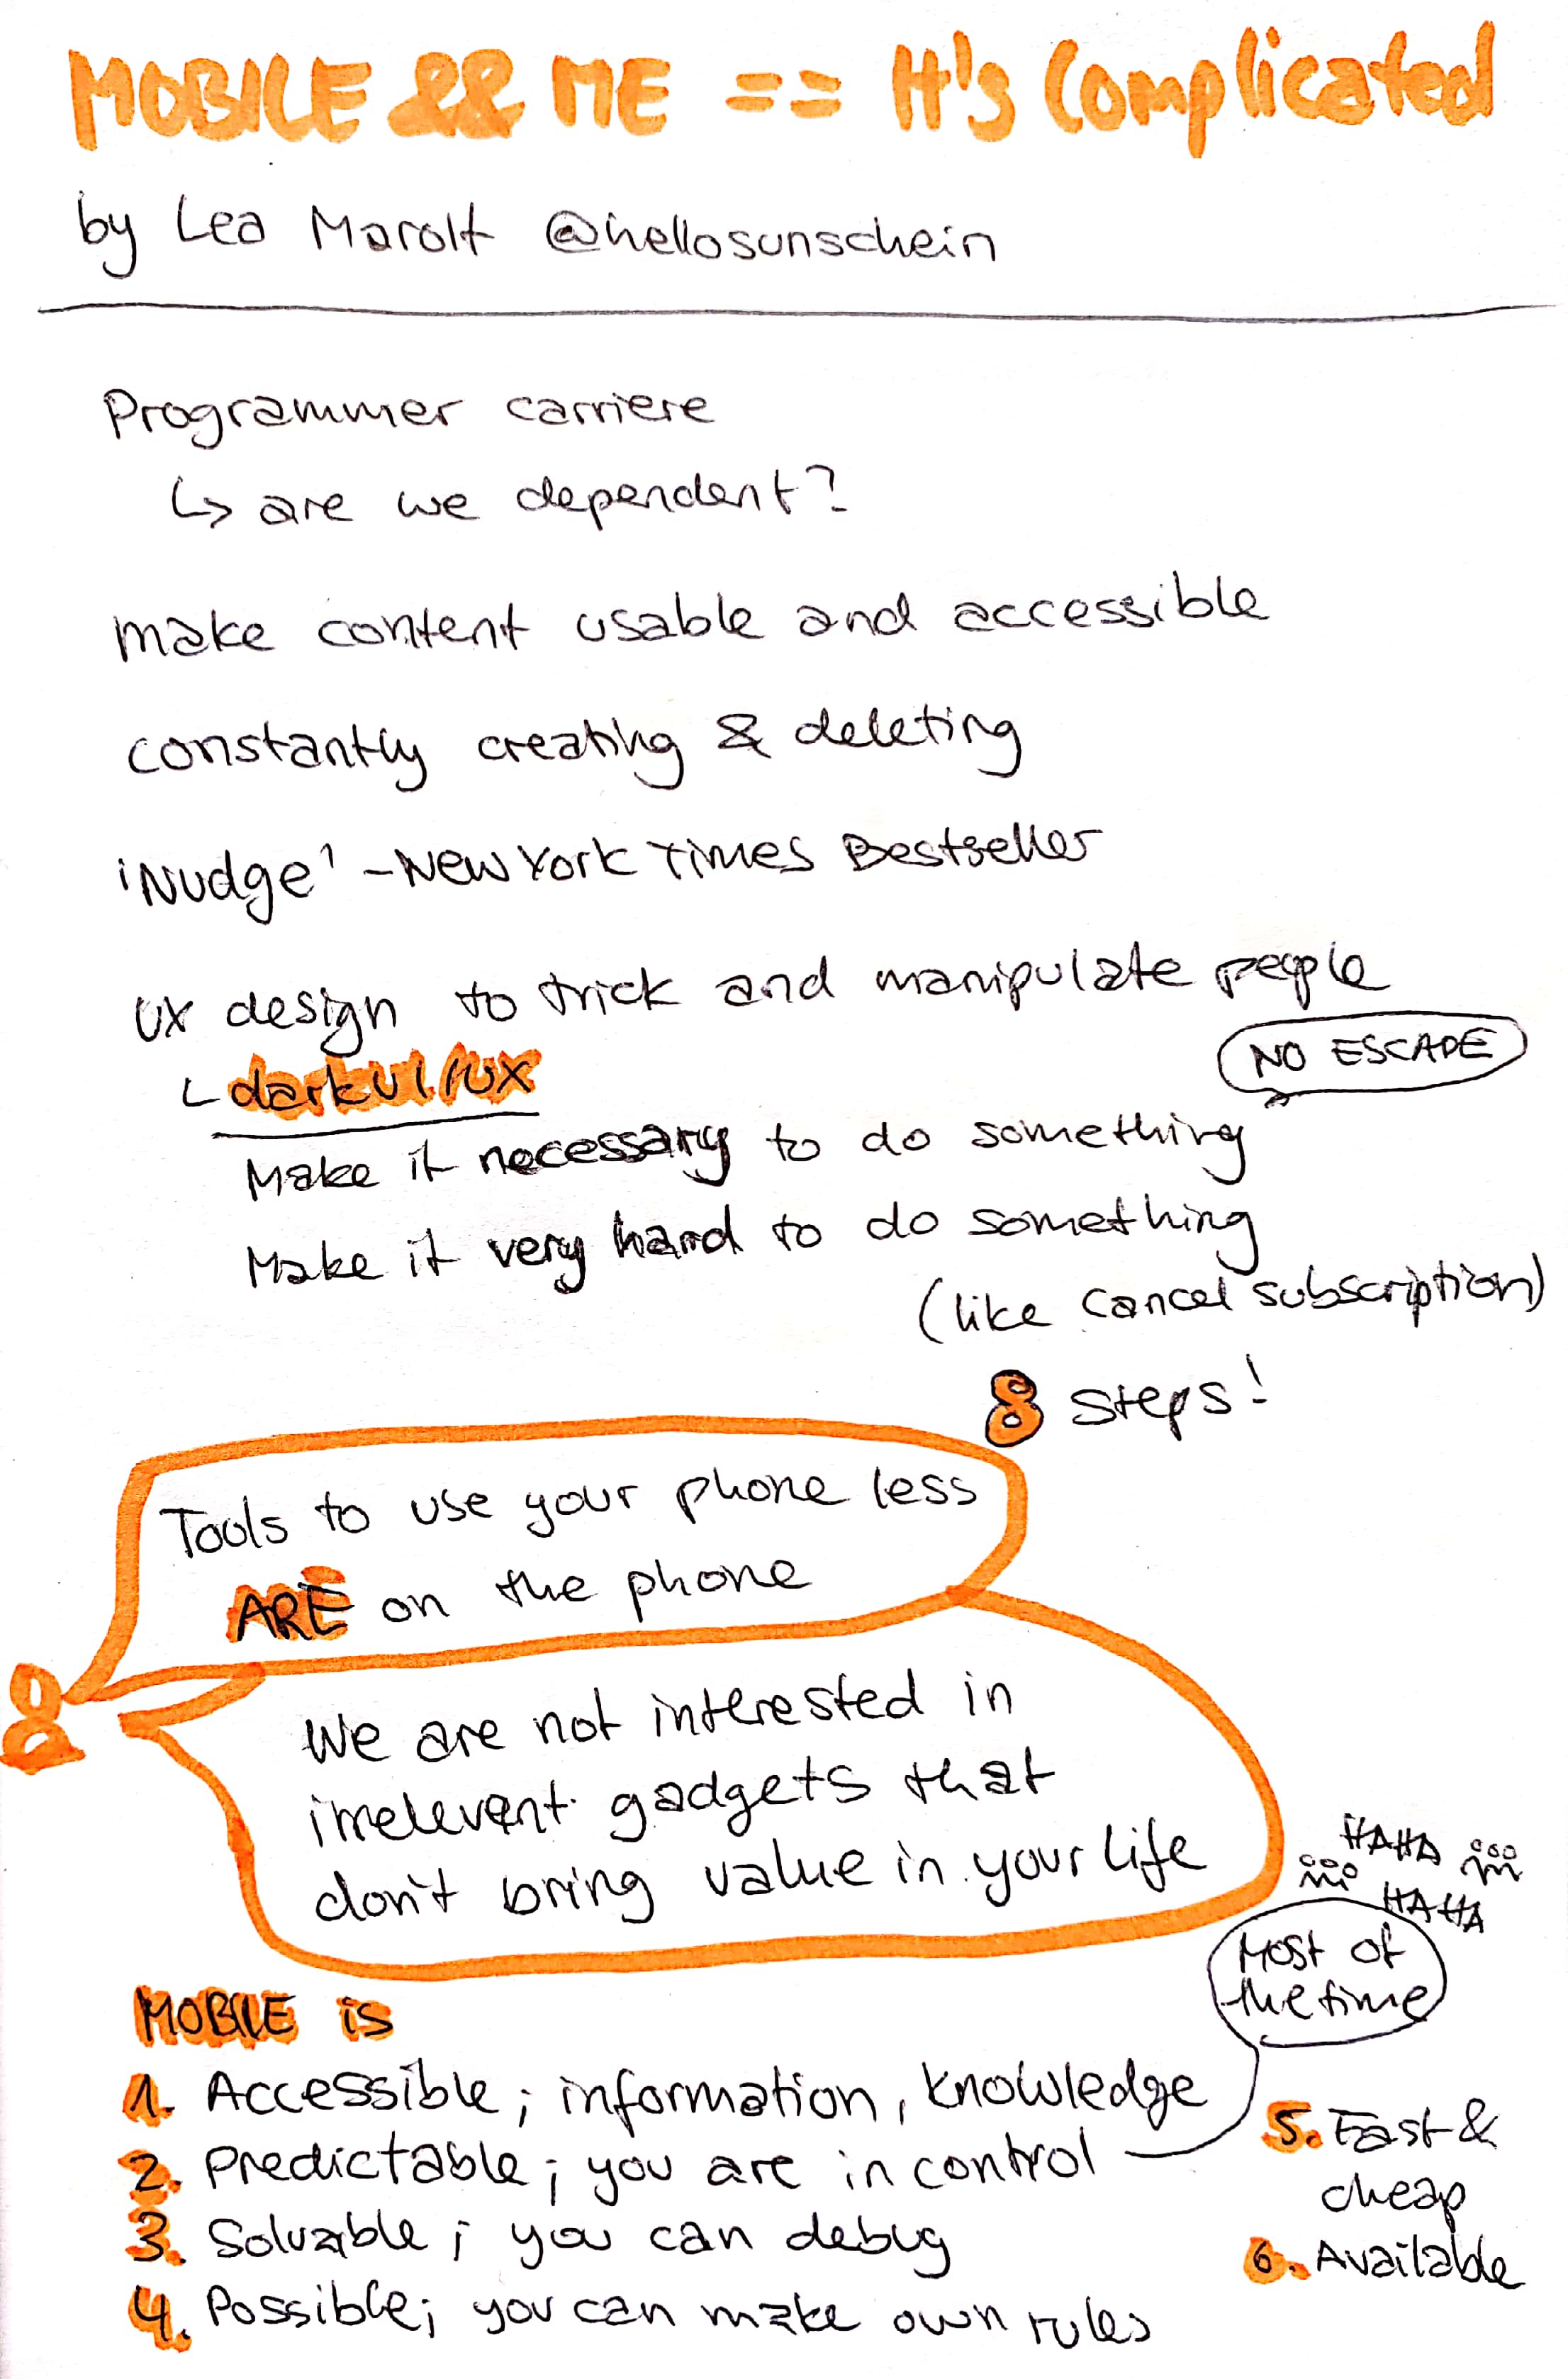 MOBILE && ME == It's Complicated
by Lea Marolt @hellosunschein
Programmer carriere
↳ are we dependent?
make content usable and accessible
constantly creating & deleting
'Nudge' - New York Times Bestseller
UX design to trick and manipulate people
NO ESCAPE
dark UI/UX
Make it necessary to do something
Make it very hard to do something
(like cancel subscription)
8 steps!
Tools to use your phone less
ARE on the phone
We are not interested in
irrelevant gadgets that
don't bring value in your life
HAHA
HAHA
Most of
the time
MOBILE is
1. Accessible; information, knowledge
2. Predictable; you are in control
3. Solvable; you can debug
4. Possible; you can make own rules
5. Fast &
cheap
6. Available